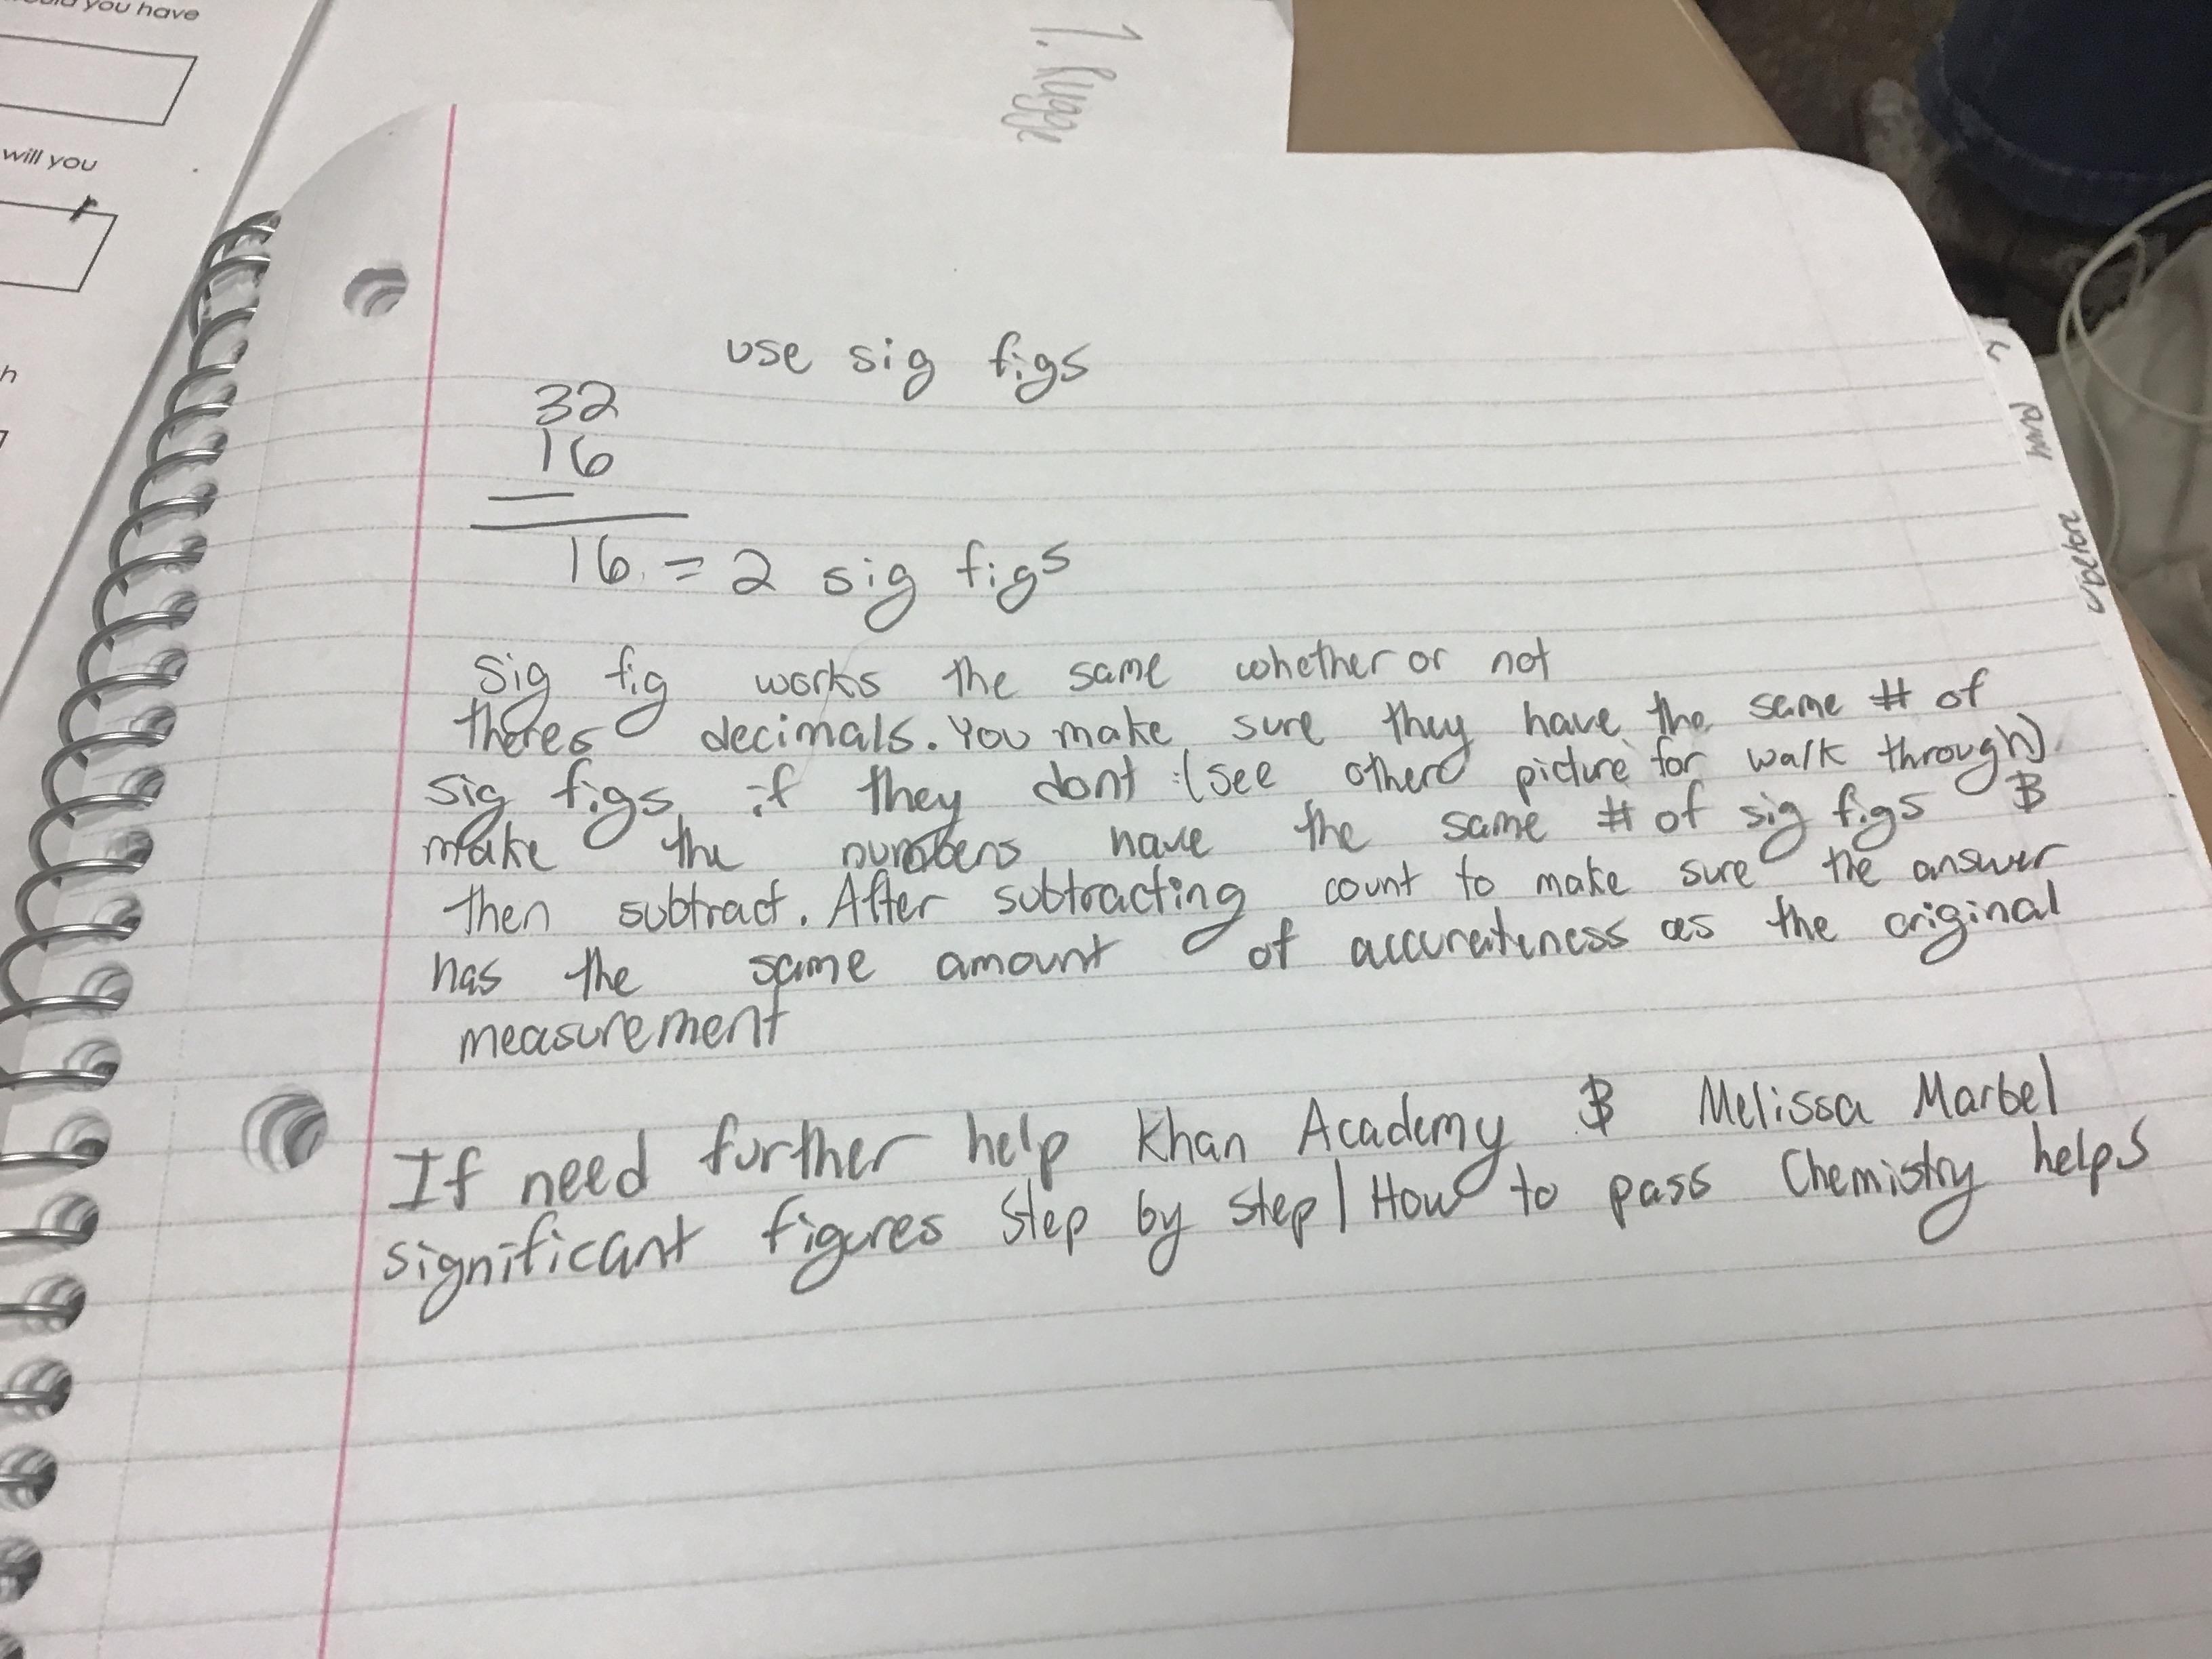 you have
will you
h
1. Rugge
use sig figs
32
16
—
16 = 2 sig figs
Sig fig works the same whether or not
theres decimals. You make sure they have the same # of
sig figs if they dont (see other picture for walk through)
make the numbers have the same # of sig figs &
then subtract. After subtracting count to make sure the answer
has the same amount of accurateness as the original
measurement
If need further help Khan Academy & Melissa Marbel
significant figures Step by Step | How to pass Chemistry helps
hard
before